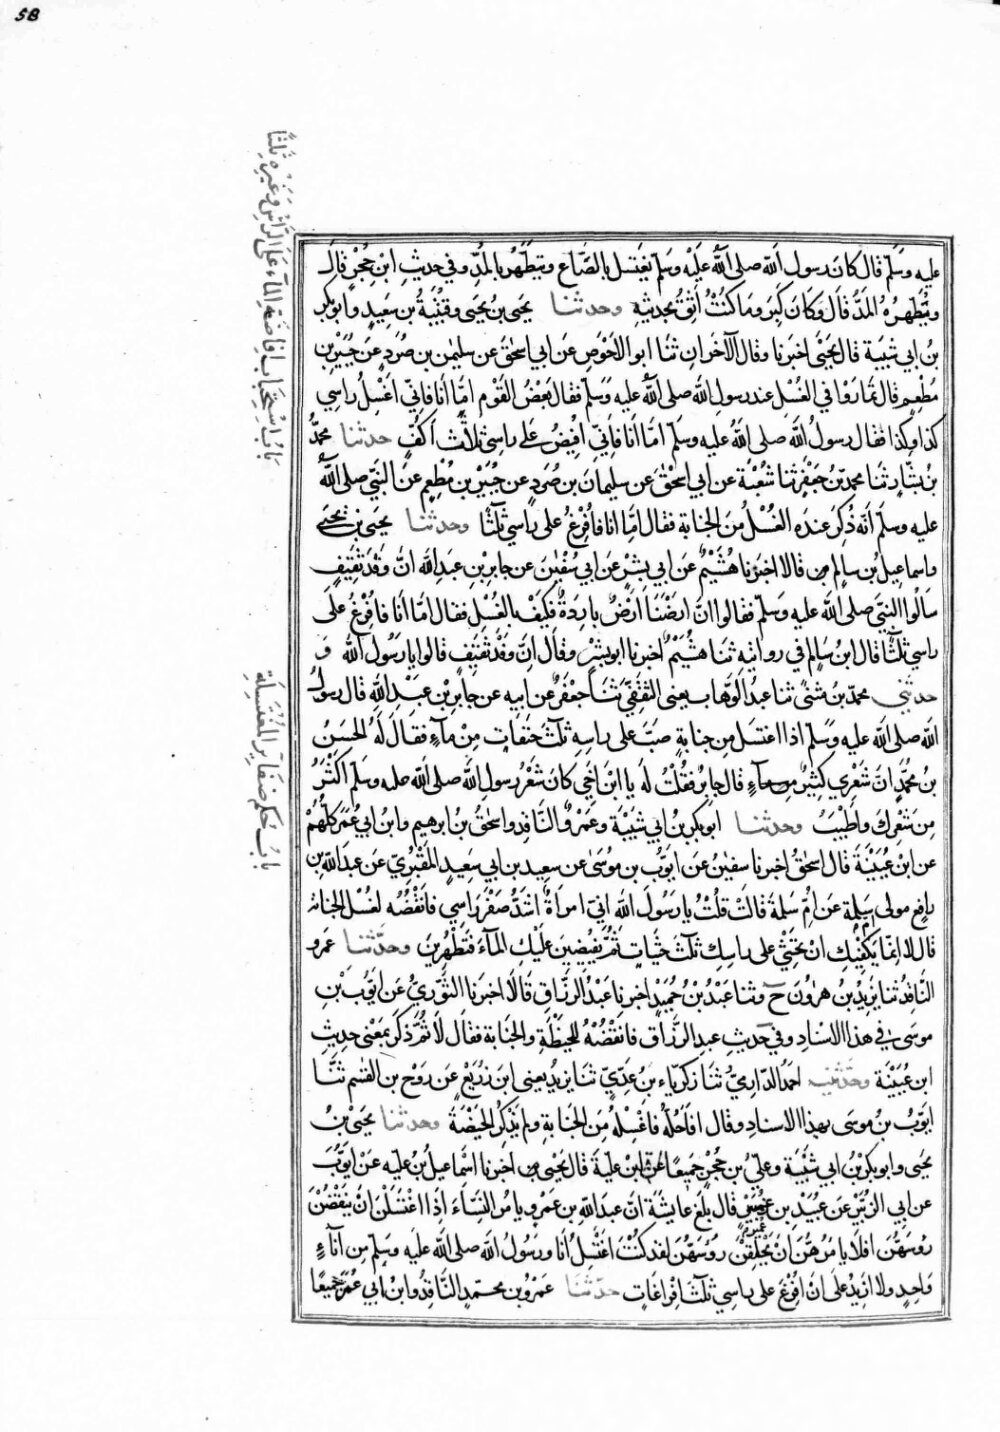 58
باب استحباب افاضة الماء على الرأس وغيره ثلثا
عليه وسلم قال كان رسول الله صلى الله عليه وسلم يغتسل بالصاع ويتطهر بالمد وفي حديث ابن حجر قال
ويطهره المد قال وكان كبر وما كنت اثق بحديثه وحدثنا يحيى بن يحيى وقتيبة بن سعيد وابو بكر
بن ابي شيبة قال يحيى اخبرنا وقال الآخران ثنا ابو الاحوص عن ابي اسحق عن سليمن بن صرد عن جبير بن
مطعم قال تماروا في الغسل عند رسول الله صلى الله عليه وسلم فقال بعض القوم اما انا فاني اغسل راسي
كذا وكذا فقال رسول الله صلى الله عليه وسلم اما انا فاني افيض على راسي ثلاث اكف حدثنا محمد
بن بشار ثنا محمد بن جعفر ثنا شعبة عن ابي اسحق عن سليمان بن صرد عن جبير بن مطعم عن النبي صلى الله
عليه وسلم انه ذكر عنده الغسل من الجنابة فقال اما انا فافرغ على راسي ثلثا وحدثنا يحيى بن يحيى
واسماعيل بن سالم قالا اخبرنا هشيم عن ابي بشر عن ابي سفين عن جابر بن عبد الله ان وفد ثقيف
سالوا النبي صلى الله عليه وسلم فقالوا ان ارضنا ارض باردة فكيف بالغسل فقال اما انا فافرغ على
راسي ثلثا قال ابن سالم في روايته ثنا هشيم اخبرنا ابو بشر وقال ان وفد ثقيف قالوا يا رسول الله و
حدثني محمد بن مثنى ثنا عبد الوهاب يعني الثقفي ثنا جعفر عن ابيه عن جابر بن عبد الله قال رسول
الله صلى الله عليه وسلم اذا اغتسل من جنابة صب على راسه ثلث حفنات من ماء فقال له الحسن
بن محمد ان شعري كثير قال جابر فقلت له يا ابن اخي كان شعر رسول الله صلى الله عليه وسلم اكثر
من شعرك واطيب وحدثنا ابو بكر بن ابي شيبة وعمرو الناقد واسحق بن ابرهيم وابن ابي عمر كلهم
عن ابن عيينة قال اسحق اخبرنا سفين عن ايوب بن موسى عن سعيد بن ابي سعيد المقبري عن عبد الله بن
رافع مولى ام سلمة عن ام سلمة قالت قلت يا رسول الله اني امراة اشد ضفر راسي فانقضه لغسل الجنابة
قال لا انما يكفيك ان تحثي على راسك ثلث حثيات ثم تفيضين عليك الماء فتطهرين وحدثنا عمرو
الناقد ثنا يزيد بن هرون ح وثنا عبد بن حميد اخبرنا عبد الرزاق قالا اخبرنا الثوري عن ايوب بن
موسى في هذا الاسناد وفي حديث عبد الرزاق فانقضه للحيضة والجنابة فقال لا ثم ذكر بمعنى حديث
ابن عيينة وحدثنيه احمد الدارمي ثنا زكرياء بن عدي ثنا يزيد يعني ابن زريع عن روح بن القسم ثنا
ايوب بن موسى بهذا الاسناد وقال افاحله فاغسله من الجنابة ولم يذكر الحيضة وحدثنا يحيى بن
يحيى وابو بكر بن ابي شيبة وعلي بن حجر جميعا عن ابن علية قال يحيى اخبرنا اسماعيل بن عليه عن ايوب
عن ابي الزبير عن عبيد بن عمير قال بلغ عايشة ان عبد الله بن عمرو يامر النساء اذا اغتسلن ان ينقضن
روسهن افلا يامرهن ان يحلقن روسهن لقد كنت اغتسل انا ورسول الله صلى الله عليه وسلم من اناء
واحد ولا ازيد على ان افرغ على راسي ثلثا فراغات حدثنا عمرو بن محمد الناقد وابن ابي عمر جميعا
باب حكم ضفاير المغتسلة